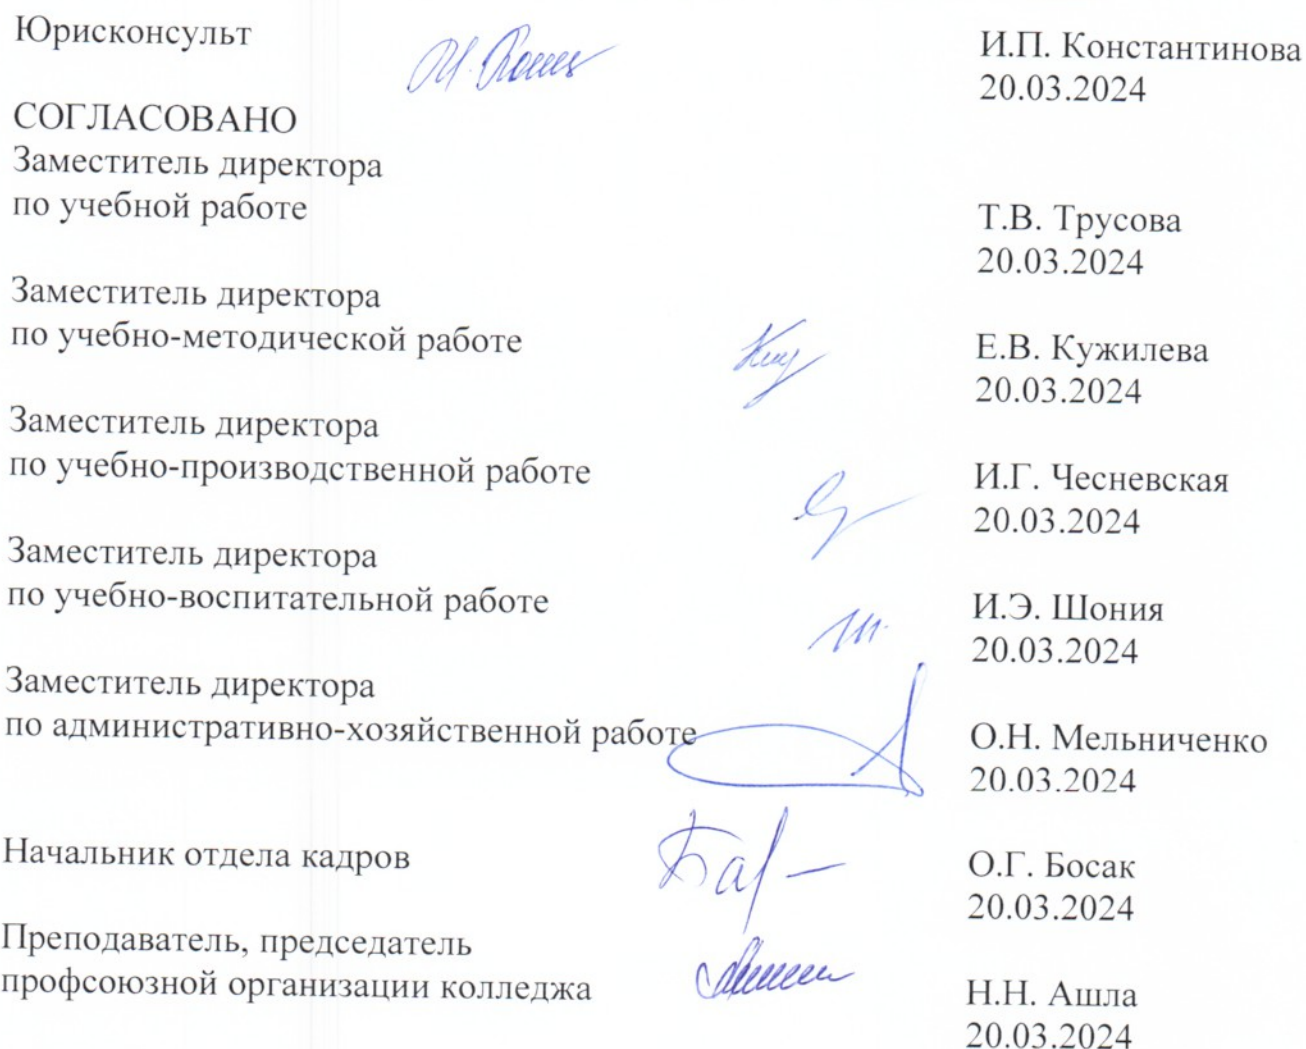 Юрисконсульт
И.П. Константинова
20.03.2024
СОГЛАСОВАНО
Заместитель директора
по учебной работе
Т.В. Трусова
20.03.2024
Заместитель директора
по учебно-методической работе
Е.В. Кужилева
20.03.2024
Заместитель директора
по учебно-производственной работе
И.Г. Чесневская
20.03.2024
Заместитель директора
по учебно-воспитательной работе
И.Э. Шония
20.03.2024
Заместитель директора
по административно-хозяйственной работе
О.Н. Мельниченко
20.03.2024
Начальник отдела кадров
О.Г. Босак
20.03.2024
Преподаватель, председатель
профсоюзной организации колледжа
Н.Н. Ашла
20.03.2024